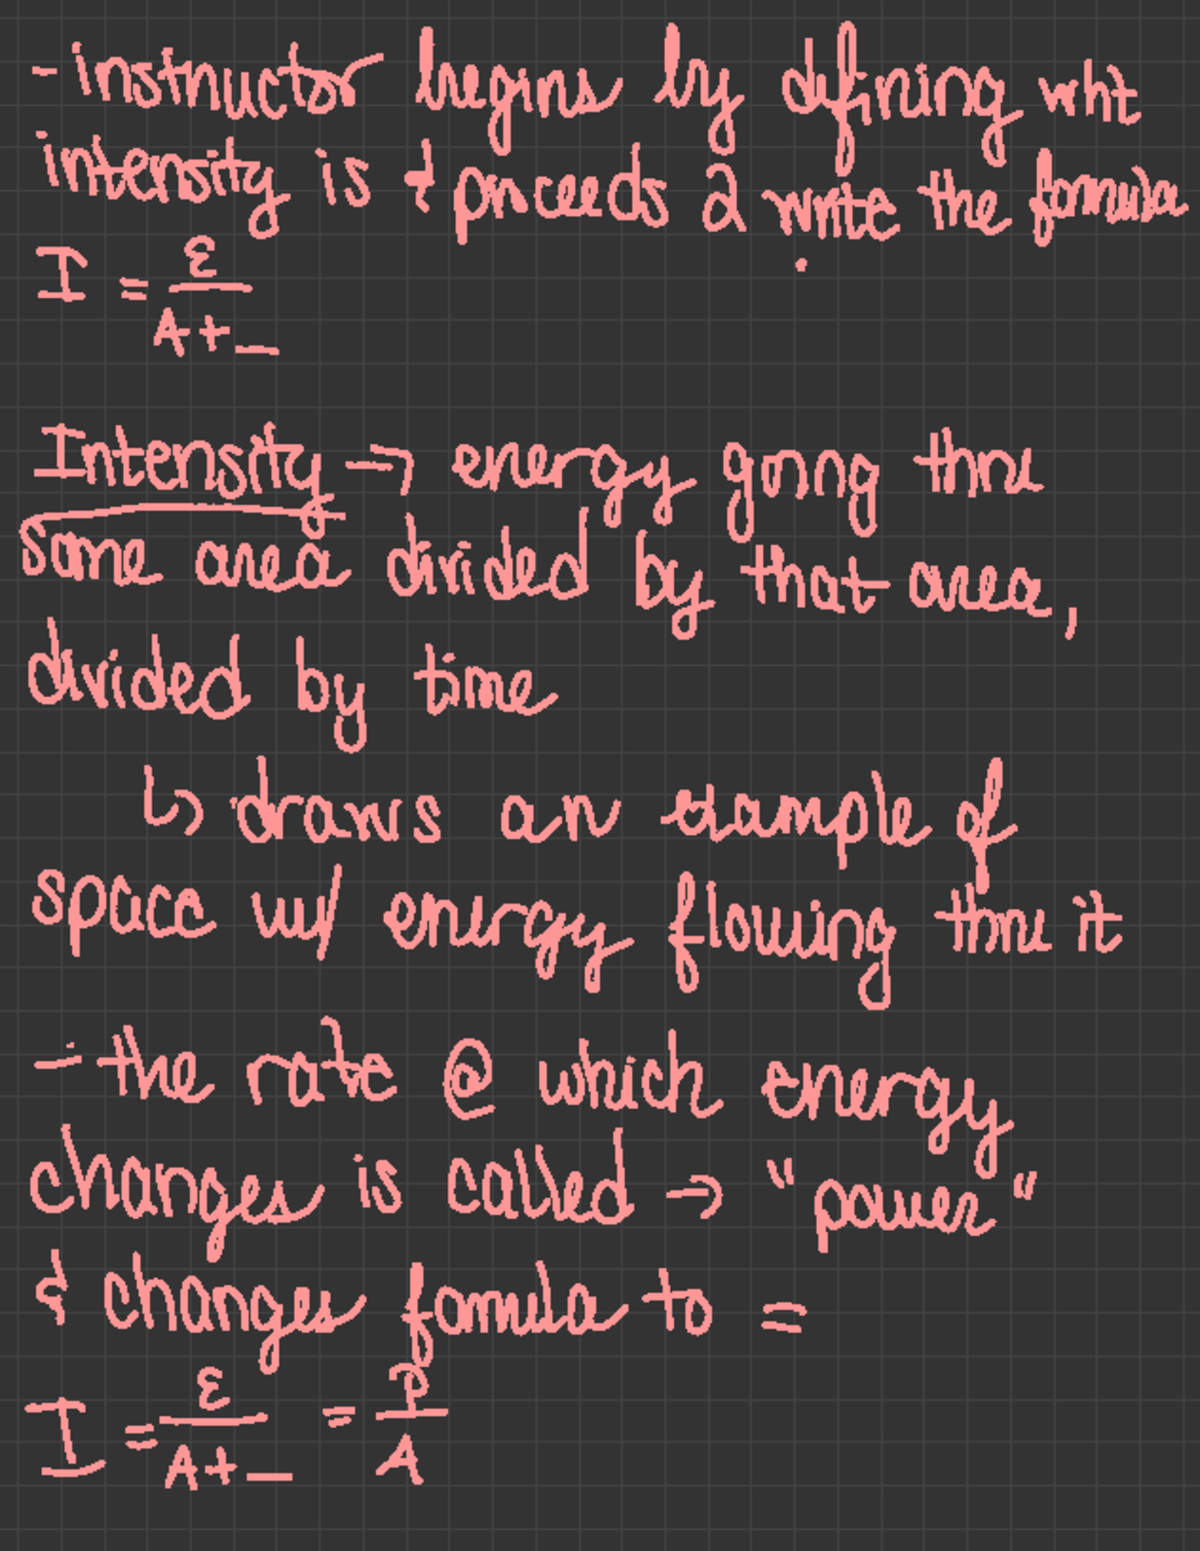 - instructor begins by defining wht
intensity is & proceeds 2 write the formula
I = ε
A+_
Intensity → energy going thru
some area divided by that area,
divided by time
↳ draws an example of
space w/ energy flowing thru it
- the rate @ which energy
changes is called → "power"
& changes fomula to =
I = ε = P
A+_ A